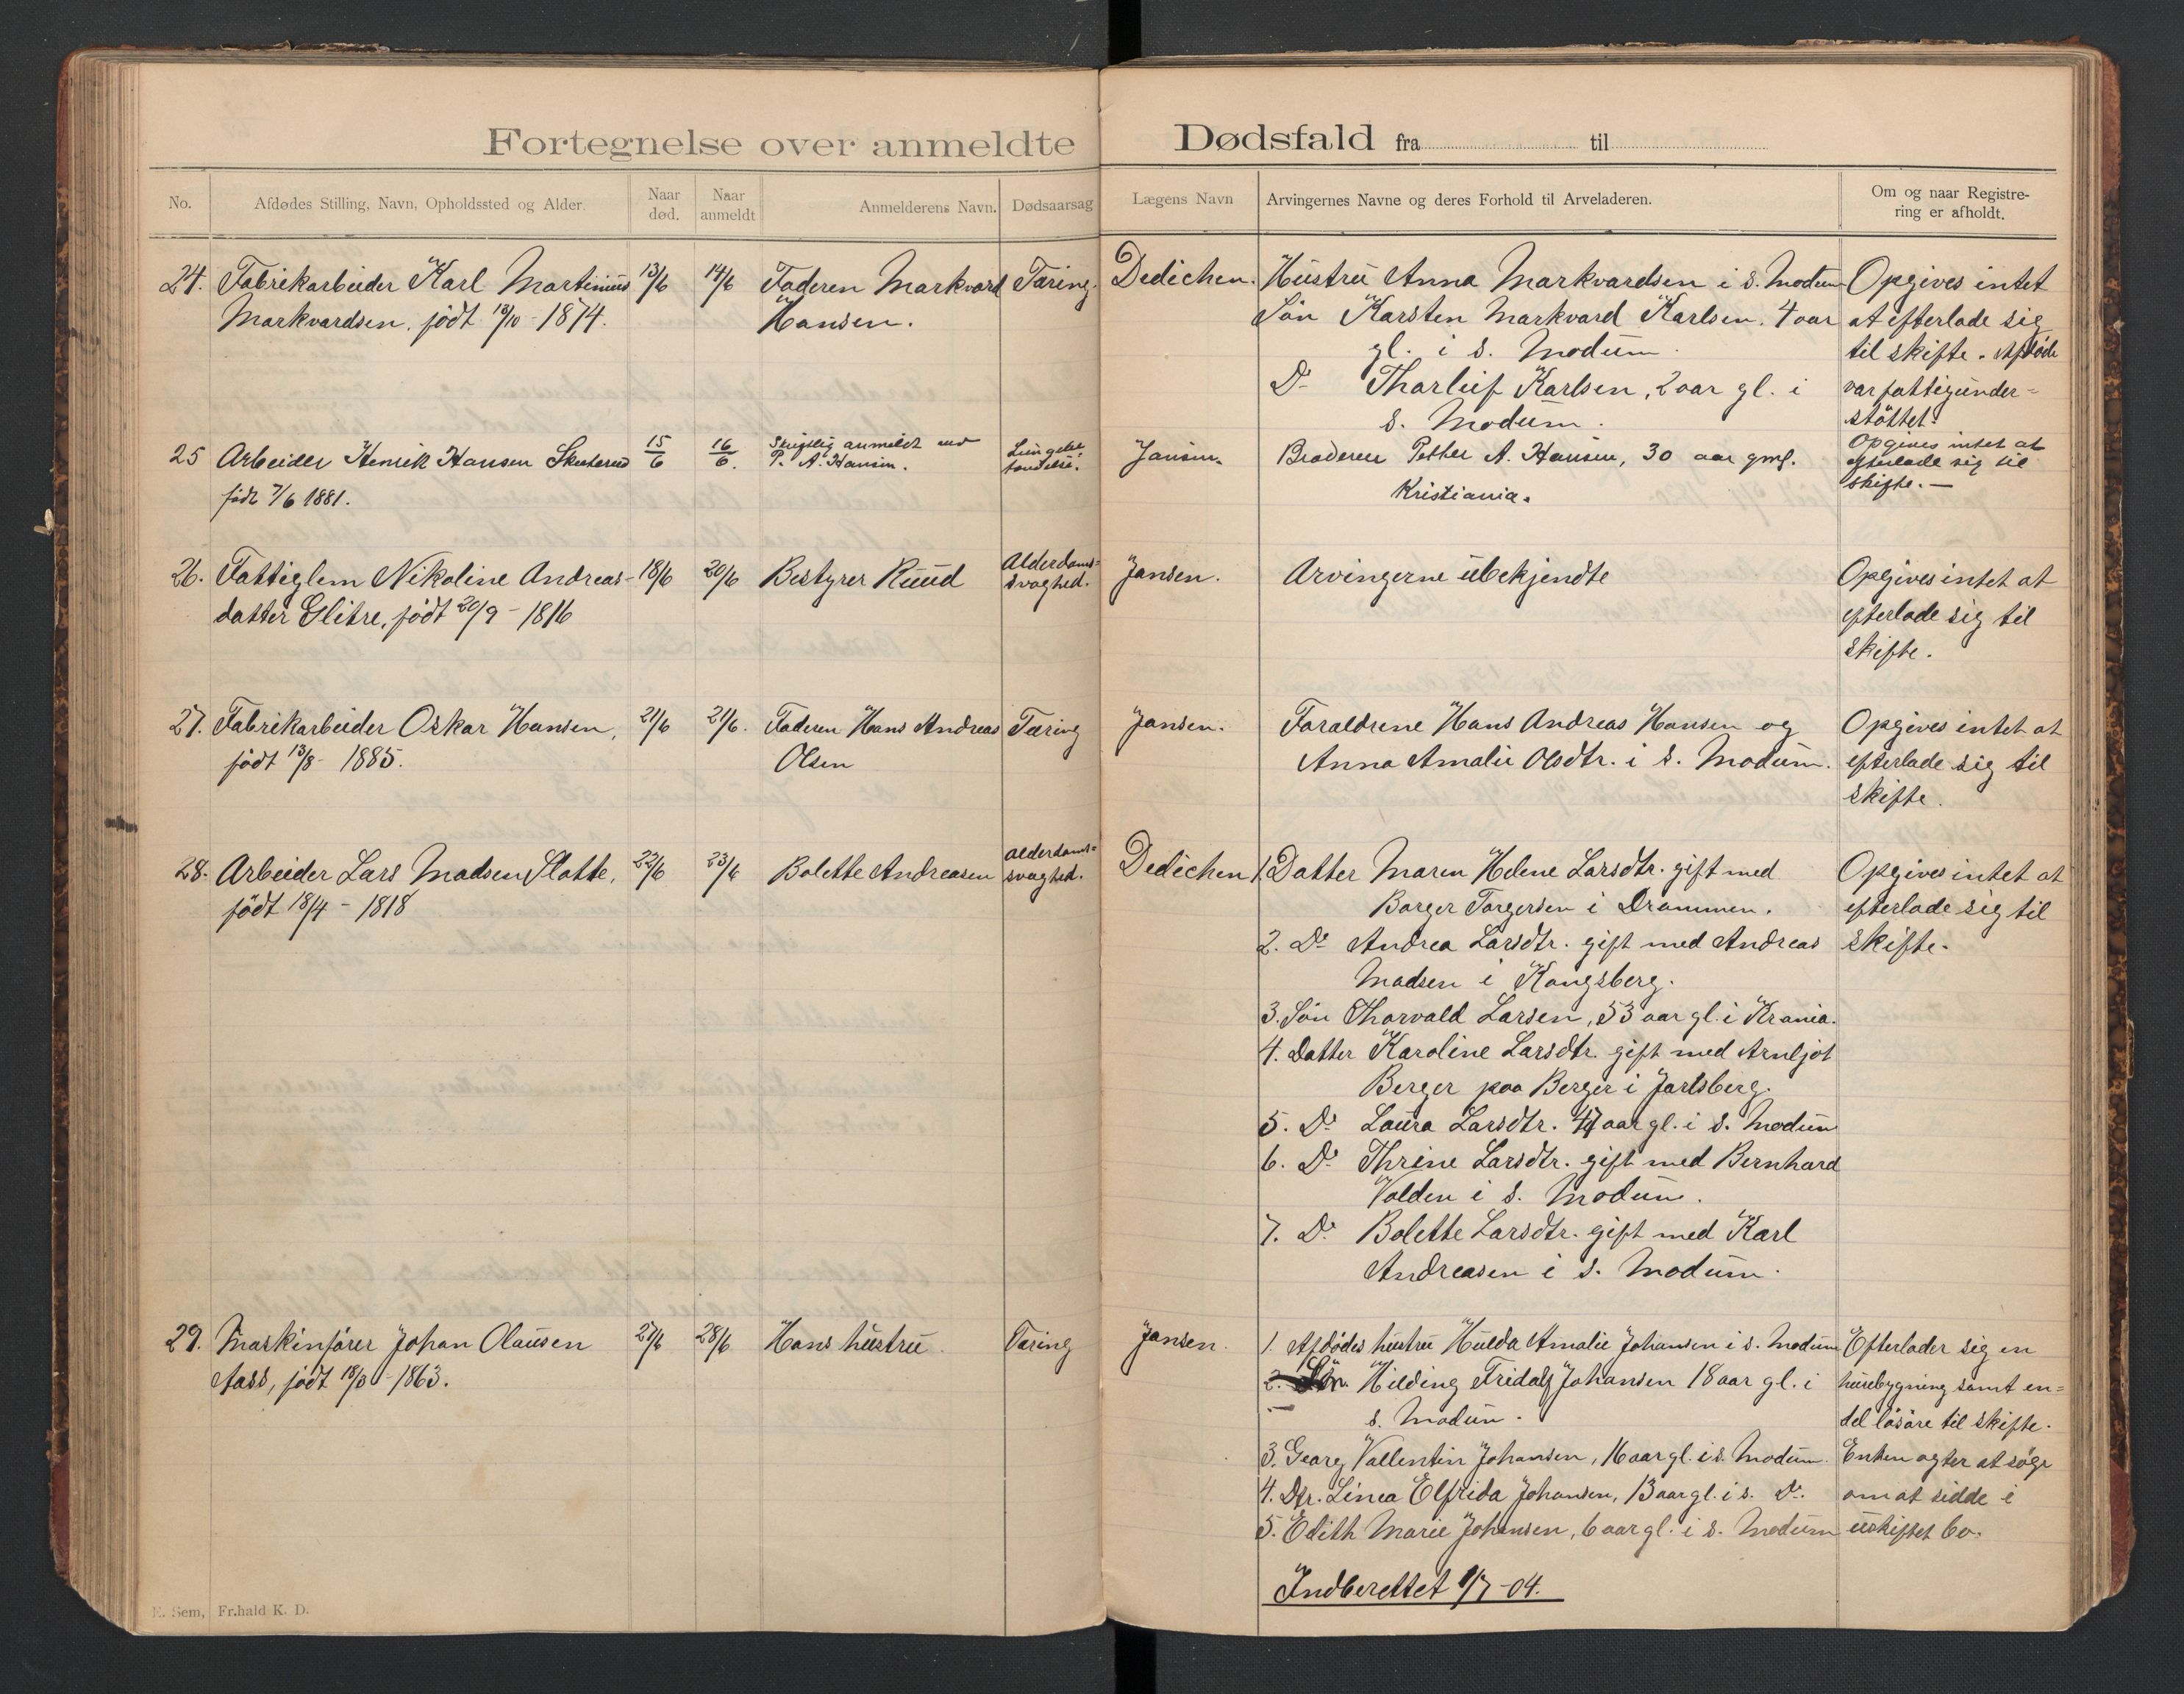 Fortegnelse over anmeldte Dødsfald fra til
No. Afdødes Stilling, Navn, Opholdssted og Alder. Naar død. Naar anmeldt Anmelderens Navn. Dødsaarsag Lægens Navn Arvingernes Navne og deres Forhold til Arveladeren. Om og naar Registrering er afholdt.
24. Fabrikarbeider Karl Martinius 13/6 14/6 Faderen Markvard Tæring. Dedichen. Hustru Anna Markvardsen i s. Modum Opgives intet
Markvardsen, født 13/10 - 1874. Hansen. Søn Karsten Markvard Karlsen. 4 aar at efterlade sig
gl. i s. Modum. til skifte. Afdøde
Do Tharleif Karlsen, 2 aar gl. i var fattigunder-
s. Modum. støttet.
25 Arbeider Henrik Hansen Skuterud 15/6 16/6. Skriftlig anmeldt ved Jansen. Broderen Petter A. Hansen, 30 aar gml. Opgives intet at
P. A. Hansen. efterlade sig til
født 7/6 1881. Kristiania. skifte. —
26. Fattiglem Nikoline Andreas- 18/6 20/6 Bestyrer Ruud Alderdoms- Jansen. Arvingerne ubekjendte Opgives intet at
datter Glitre, født 20/9 - 1816 svaghed. efterlade sig til
skifte.
27. Fabrikarbeider Oskar Hansen, 21/6 21/6. Faderen Hans Andreas Tæring Jansen. Foraldrene Hans Andreas Hansen og Opgives intet at
født 13/8 - 1885. Olsen Anna Amalie Olsdtr. i s. Modum. efterlade sig til
skifte.
28. Arbeider Lars Madsen Slotte, 22/6 23/6 Bolette Andreasen alderdoms- Dedichen 1. Datter Maren Helene Larsdtr. gift med Opgives intet at
født 18/4 - 1818 svaghed. Borger Torgersen i Drammen. efterlade sig til
2. Do Andrea Larsdtr. gift med Andreas skifte.
Madsen i Kongsberg.
3. Søn Thorvald Larsen, 53 aar gl. i Krania.
4. Datter Karoline Larsdtr. gift med Arnljot
Berger paa Berger i Jarlsberg.
5. Do Laura Larsdtr. 47 aar gl. i s. Modum
6. Do Thrine Larsdtr. gift med Bernhard
Volden i s. Modum.
7. Do Bolette Larsdtr. gift med Karl
Andreasen i s. Modum.
29. Maskinfører Johan Olausen 27/6 28/6 Hans hustru. Tæring Jansen. 1. Afdødes hustru Hulda Amalie Johansen i s. Modum Efterlader sig en
Aass, født 18/8 - 1863. 2. Søn. Hilding Fridalf Johansen 18 aar gl. i husebygning samt en-
s. Modum. del løsøre til skifte.
3. Georg Vallentin Johansen, 16 aar gl. i s. Modum. Enken agter at søge
4. Dtr. Linea Elfrida Johansen, 13 aar gl. i s. Do. om at sidde i
5. Edith Marie Johansen, 6 aar gl. i s. Modum uskiftet bo.
Indberettet 1/7 - 04.
E. Sem, Fr.hald K. D.